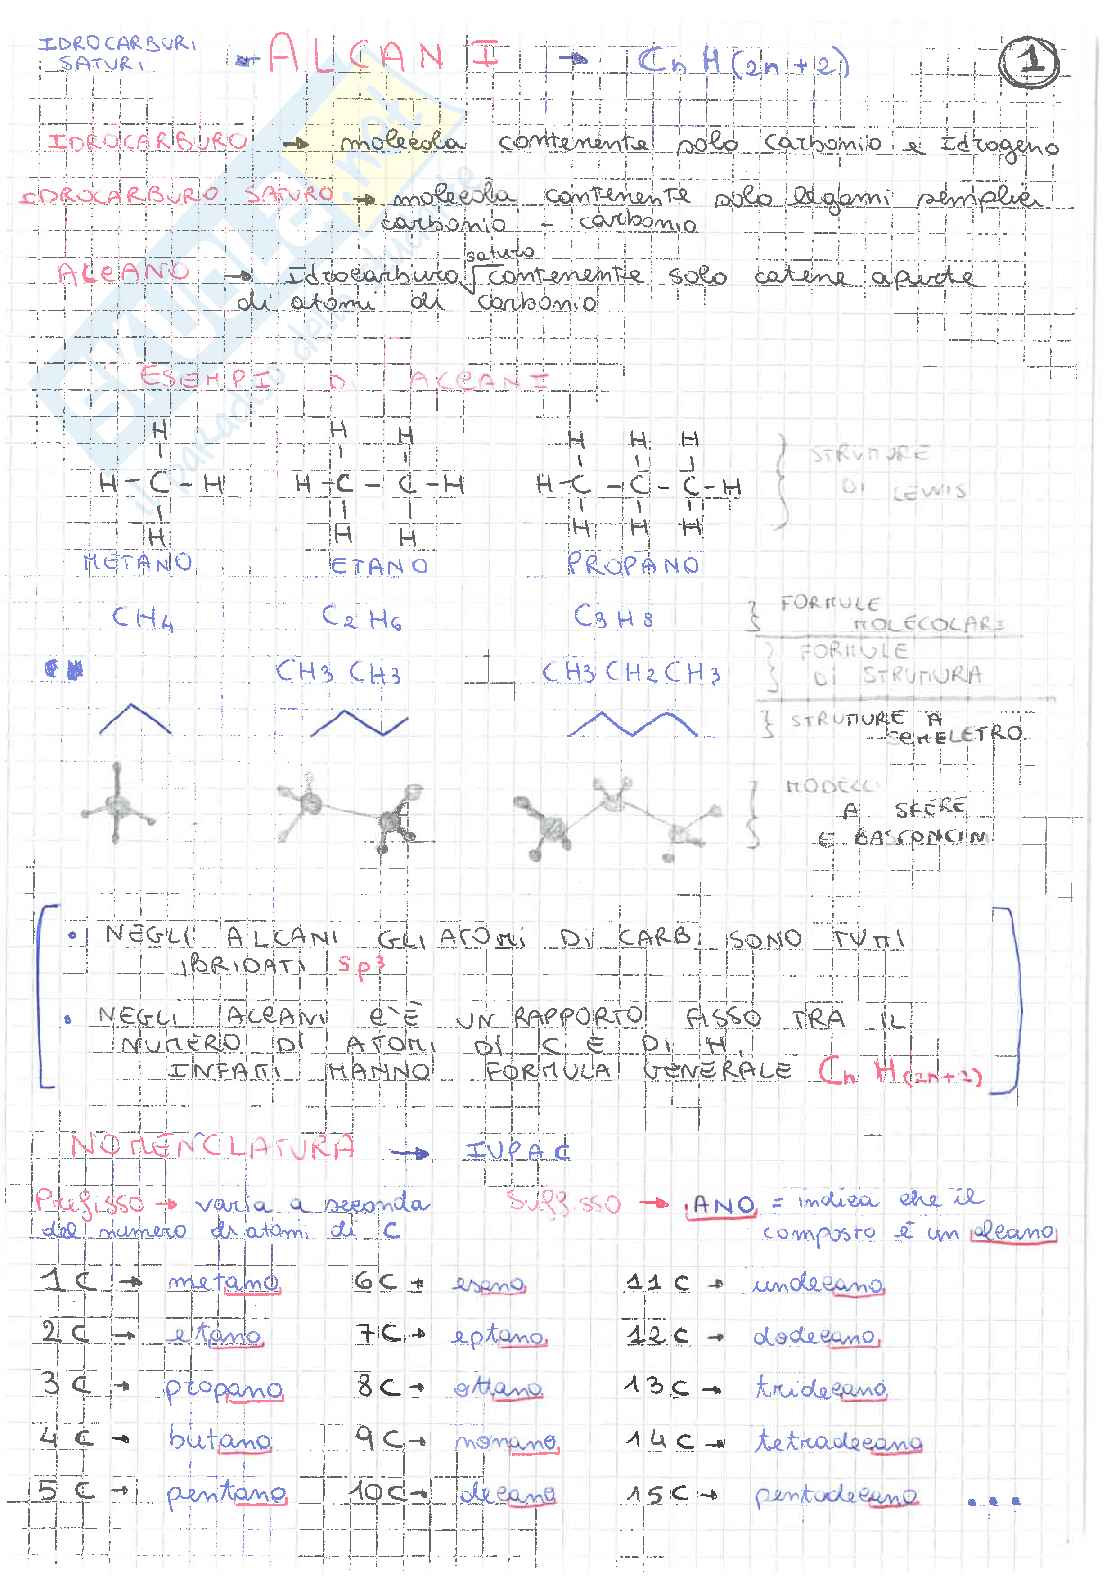 IDROCARBURI
SATURI
← ALCANI → Cn H(2n+2)
1
IDROCARBURO → molecola contenente solo carbonio e Idrogeno
IDROCARBURO SATURO → molecola contenente solo legami semplici
carbonio - carbonio
saturo
ALCANO → Idrocarburo √ contenente solo catene aperte
di atomi di carbonio
ESEMPI DI ALCANI
H H H H H H
H-C-H H-C-C-H H-C-C-C-H
H H H H H H
STRUTTURE
DI LEWIS
METANO ETANO PROPANO
CH4 C2H6 C3H8
FORMULE
MOLECOLARI
CH3CH3 CH3CH2CH3
FORMULE
DI STRUTTURA
STRUTTURE A
SCHELETRO
MODELLI
A SFERE
E BASTONCINI
• NEGLI ALCANI GLI ATOMI DI CARB. SONO TUTTI
IBRIDATI sp3
• NEGLI ALCANI C'È UN RAPPORTO FISSO TRA IL
NUMERO DI ATOMI DI C E DI H.
INFATTI HANNO FORMULA GENERALE Cn H(2n+2)
NOMENCLATURA → IUPAC
Prefisso → varia a seconda
del numero di atomi di C
Suffisso → .ANO = indica che il
composto è un alcano
1C → metano 6C → esano 11C → undecano
2C → etano 7C → eptano 12C → dodecano
3C → propano 8C → ottano 13C → tridecano
4C → butano 9C → nonano 14C → tetradecano
5C → pentano 10C → decano 15C → pentadecano ...